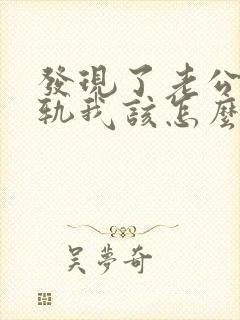 發現了老公
軌我該怎麼
吳夢奇